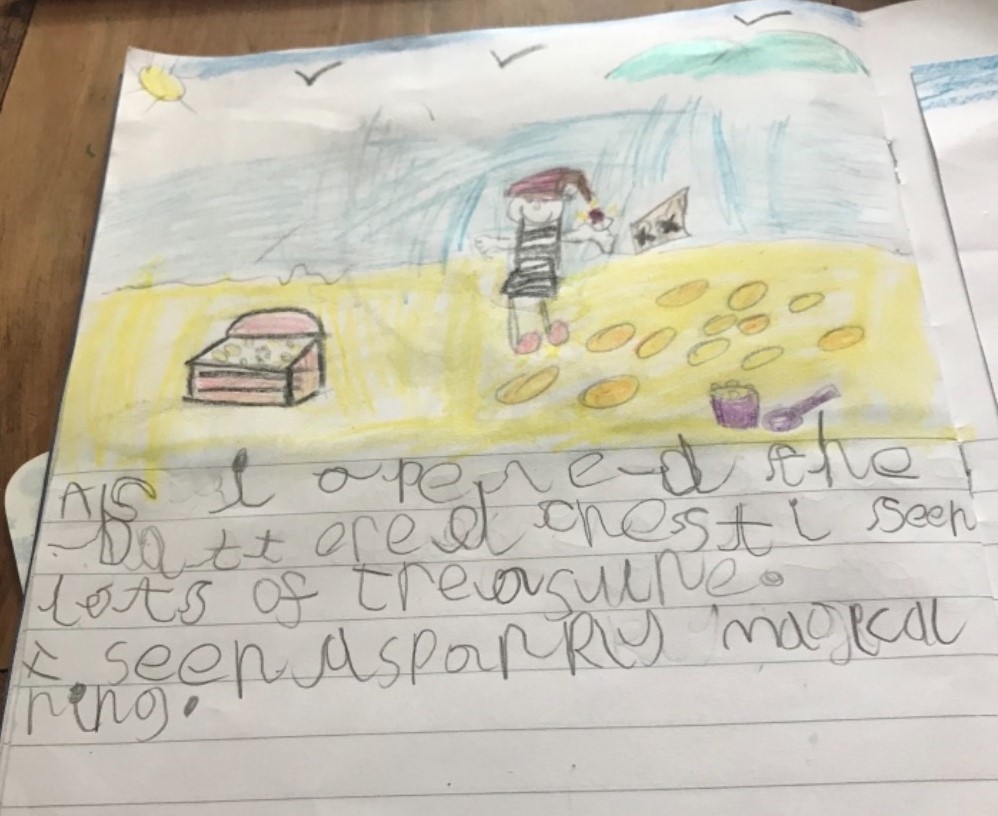 As I opened the
Battered chest I seen
lots of treasure.
I seen A sparkly magical
ring.